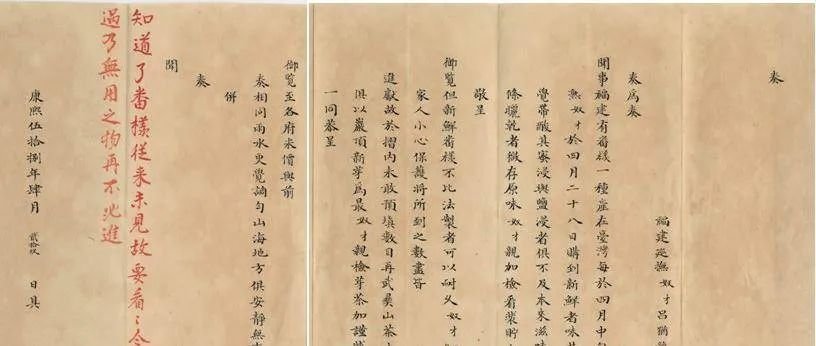 奏
福建巡撫奴才呂猶
奏為奏
聞事福建有番檨一種產在臺灣每於四月中
熟奴才於四月二十八日購到新鮮者味
覺帶酸其蜜浸與鹽浸者俱不及本來滋
條曬乾者微存原味奴才親加檢看裝貯
敬呈
御覽但新鮮番檨不比法製者可以耐久奴才
家人小心保護將所到之數盡皆
進獻故於摺內未敢預填數目再武彝山茶
俱以巖頂新芽為最奴才親檢芽茶加謹
一同恭呈
御覽至各府米價與前
奏相同雨水更覺調勻山海地方俱安靜無
併
奏
聞
知道了番檨從来未見故要看〻今
過乃無用之物再不必進
康熙伍拾捌年肆月 貳拾玖 日具